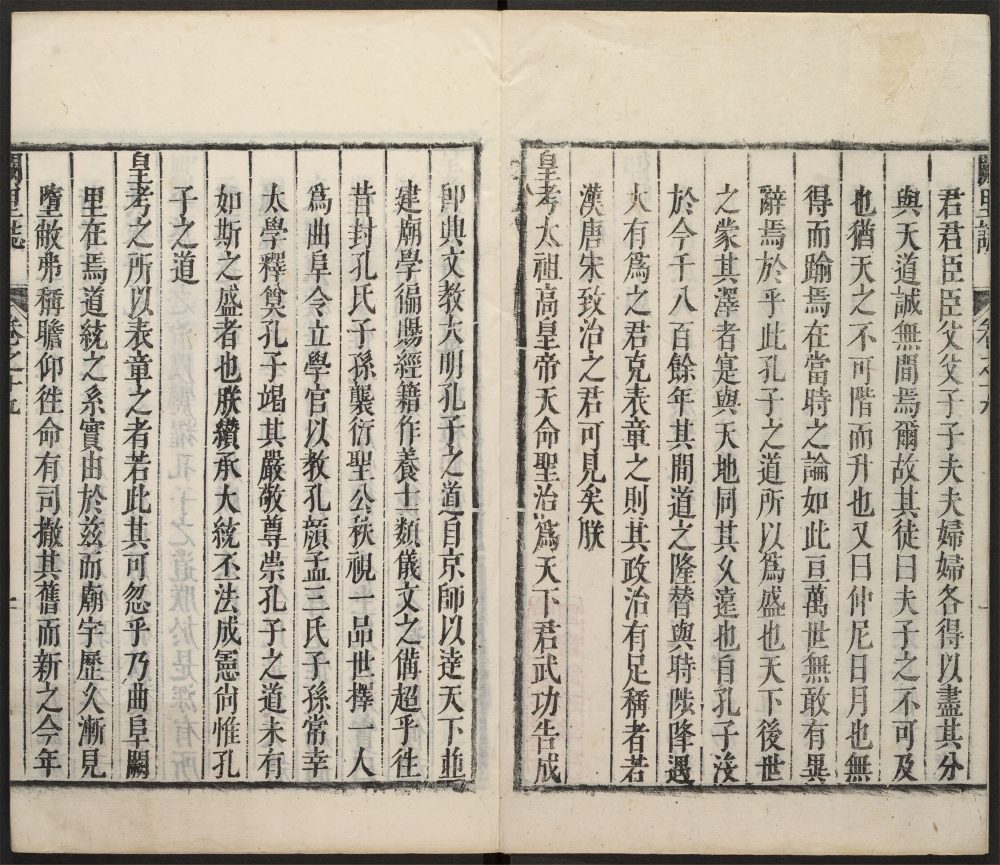 闕里誌
君君臣臣父父子子夫夫婦婦各得以盡其分
與天道誠無間焉爾故其徒曰夫子之不可及
也猶天之不可階而升也又曰仲尼日月也無
得而踰焉在當時之論如此亘萬世無敢有異
辭焉於乎此孔子之道所以為盛也天下後世
之蒙其澤者寔與天地同其久遠也自孔子沒
於今千八百餘年其間道之隆替與時陟降遇
大有為之君克表章之則其政治有足稱者若
漢唐宋致治之君可見矣朕
皇考太祖高皇帝天命聖治為天下君武功告成
即典文教大明孔子之道自京師以逹天下並
建廟學徧賜經籍作養士類儀文之備超乎徃
昔封孔氏子孫襲衍聖公秩視一品世擇一人
為曲阜令立學官以教孔顔孟三氏子孫常幸
太學釋奠孔子竭其嚴敬尊崇孔子之道未有
如斯之盛者也朕纘承大統丕法成憲尚惟孔
子之道
皇考之所以表章之者若此其可忽乎乃曲阜闕
里在焉道統之系實由於兹而廟宇歷久漸見
墮敝弗稱瞻仰徃命有司撤其舊而新之今年
闕里誌 卷之十九